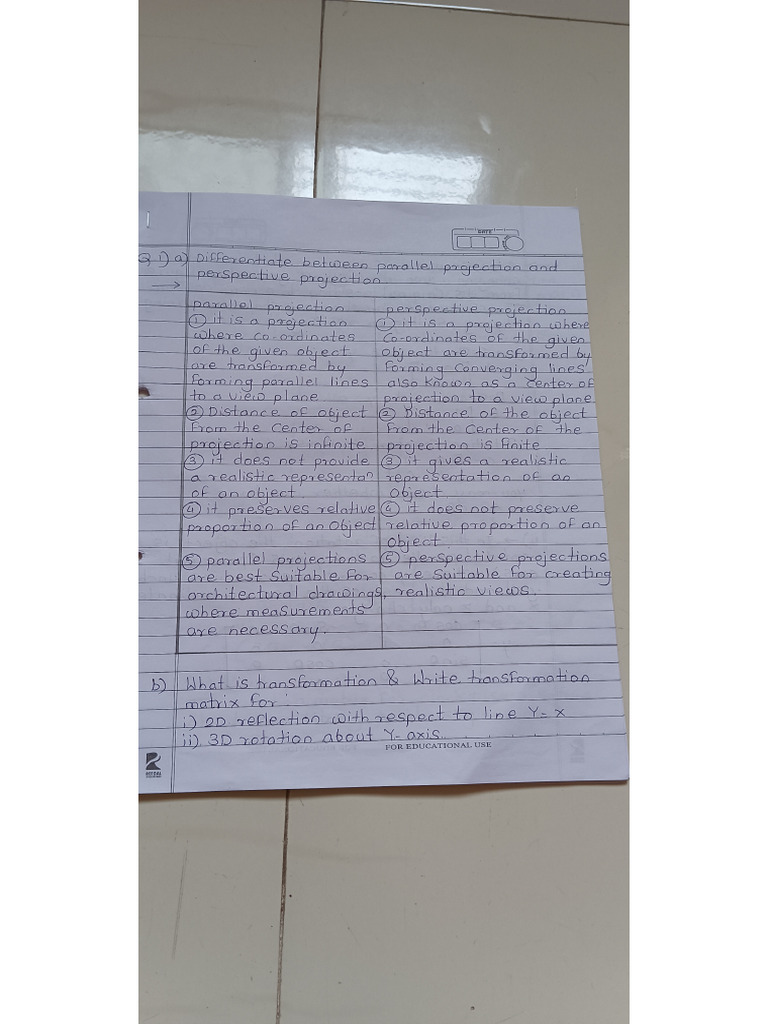 DATE
Q 1) a) Differentiate between parallel projection and
perspective projection.
parallel projection
① it is a projection
where co-ordinates
of the given object
are transformed by
forming parallel lines
to a view plane
② Distance of object
from the center of
projection is infinite
③ it does not provide
a realistic representaⁿ
of an object.
④ it preserves relative
proportion of an object
⑤ parallel projections
are best suitable for
architectural drawings,
where measurements
are necessary.
perspective projection
① it is a projection where
co-ordinates of the given
object are transformed by
forming converging lines
also known as a center of
projection to a view plane
② Distance of the object
from the center of the
projection is finite
③ it gives a realistic
representation of an
object.
④ it does not preserve
relative proportion of an
object.
⑤ perspective projections
are suitable for creating
realistic views.
b) What is transformation & Write transformation
matrix for
i) 2D reflection with respect to line Y=x
ii) 3D rotation about Y-axis.
FOR EDUCATIONAL USE